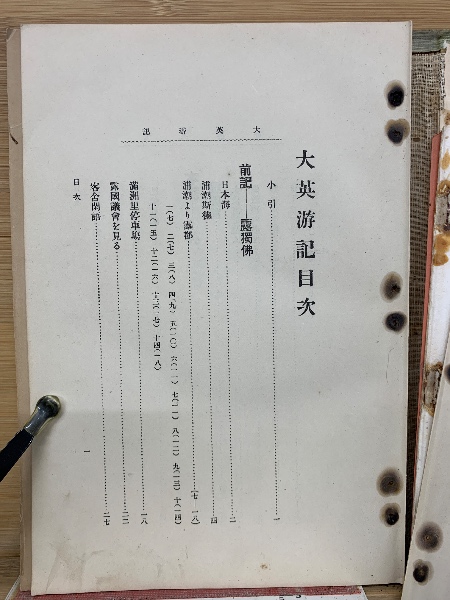 大英游記
大英游記目次
小引……一
前記——露獨佛
日本海……二
浦潮斯德……四
浦潮より露都……(七—一八)
一(七) 二(七) 三(八) 四(九) 五(一〇) 六(一一) 七(一一) 八(一二) 九(一三) 十(一四)
十一(一五) 十二(一六) 十三(一七) 十四(一八)
滿洲里停車場……一八
露國議會を見る……二二
客舍閑話……二七
目次
一